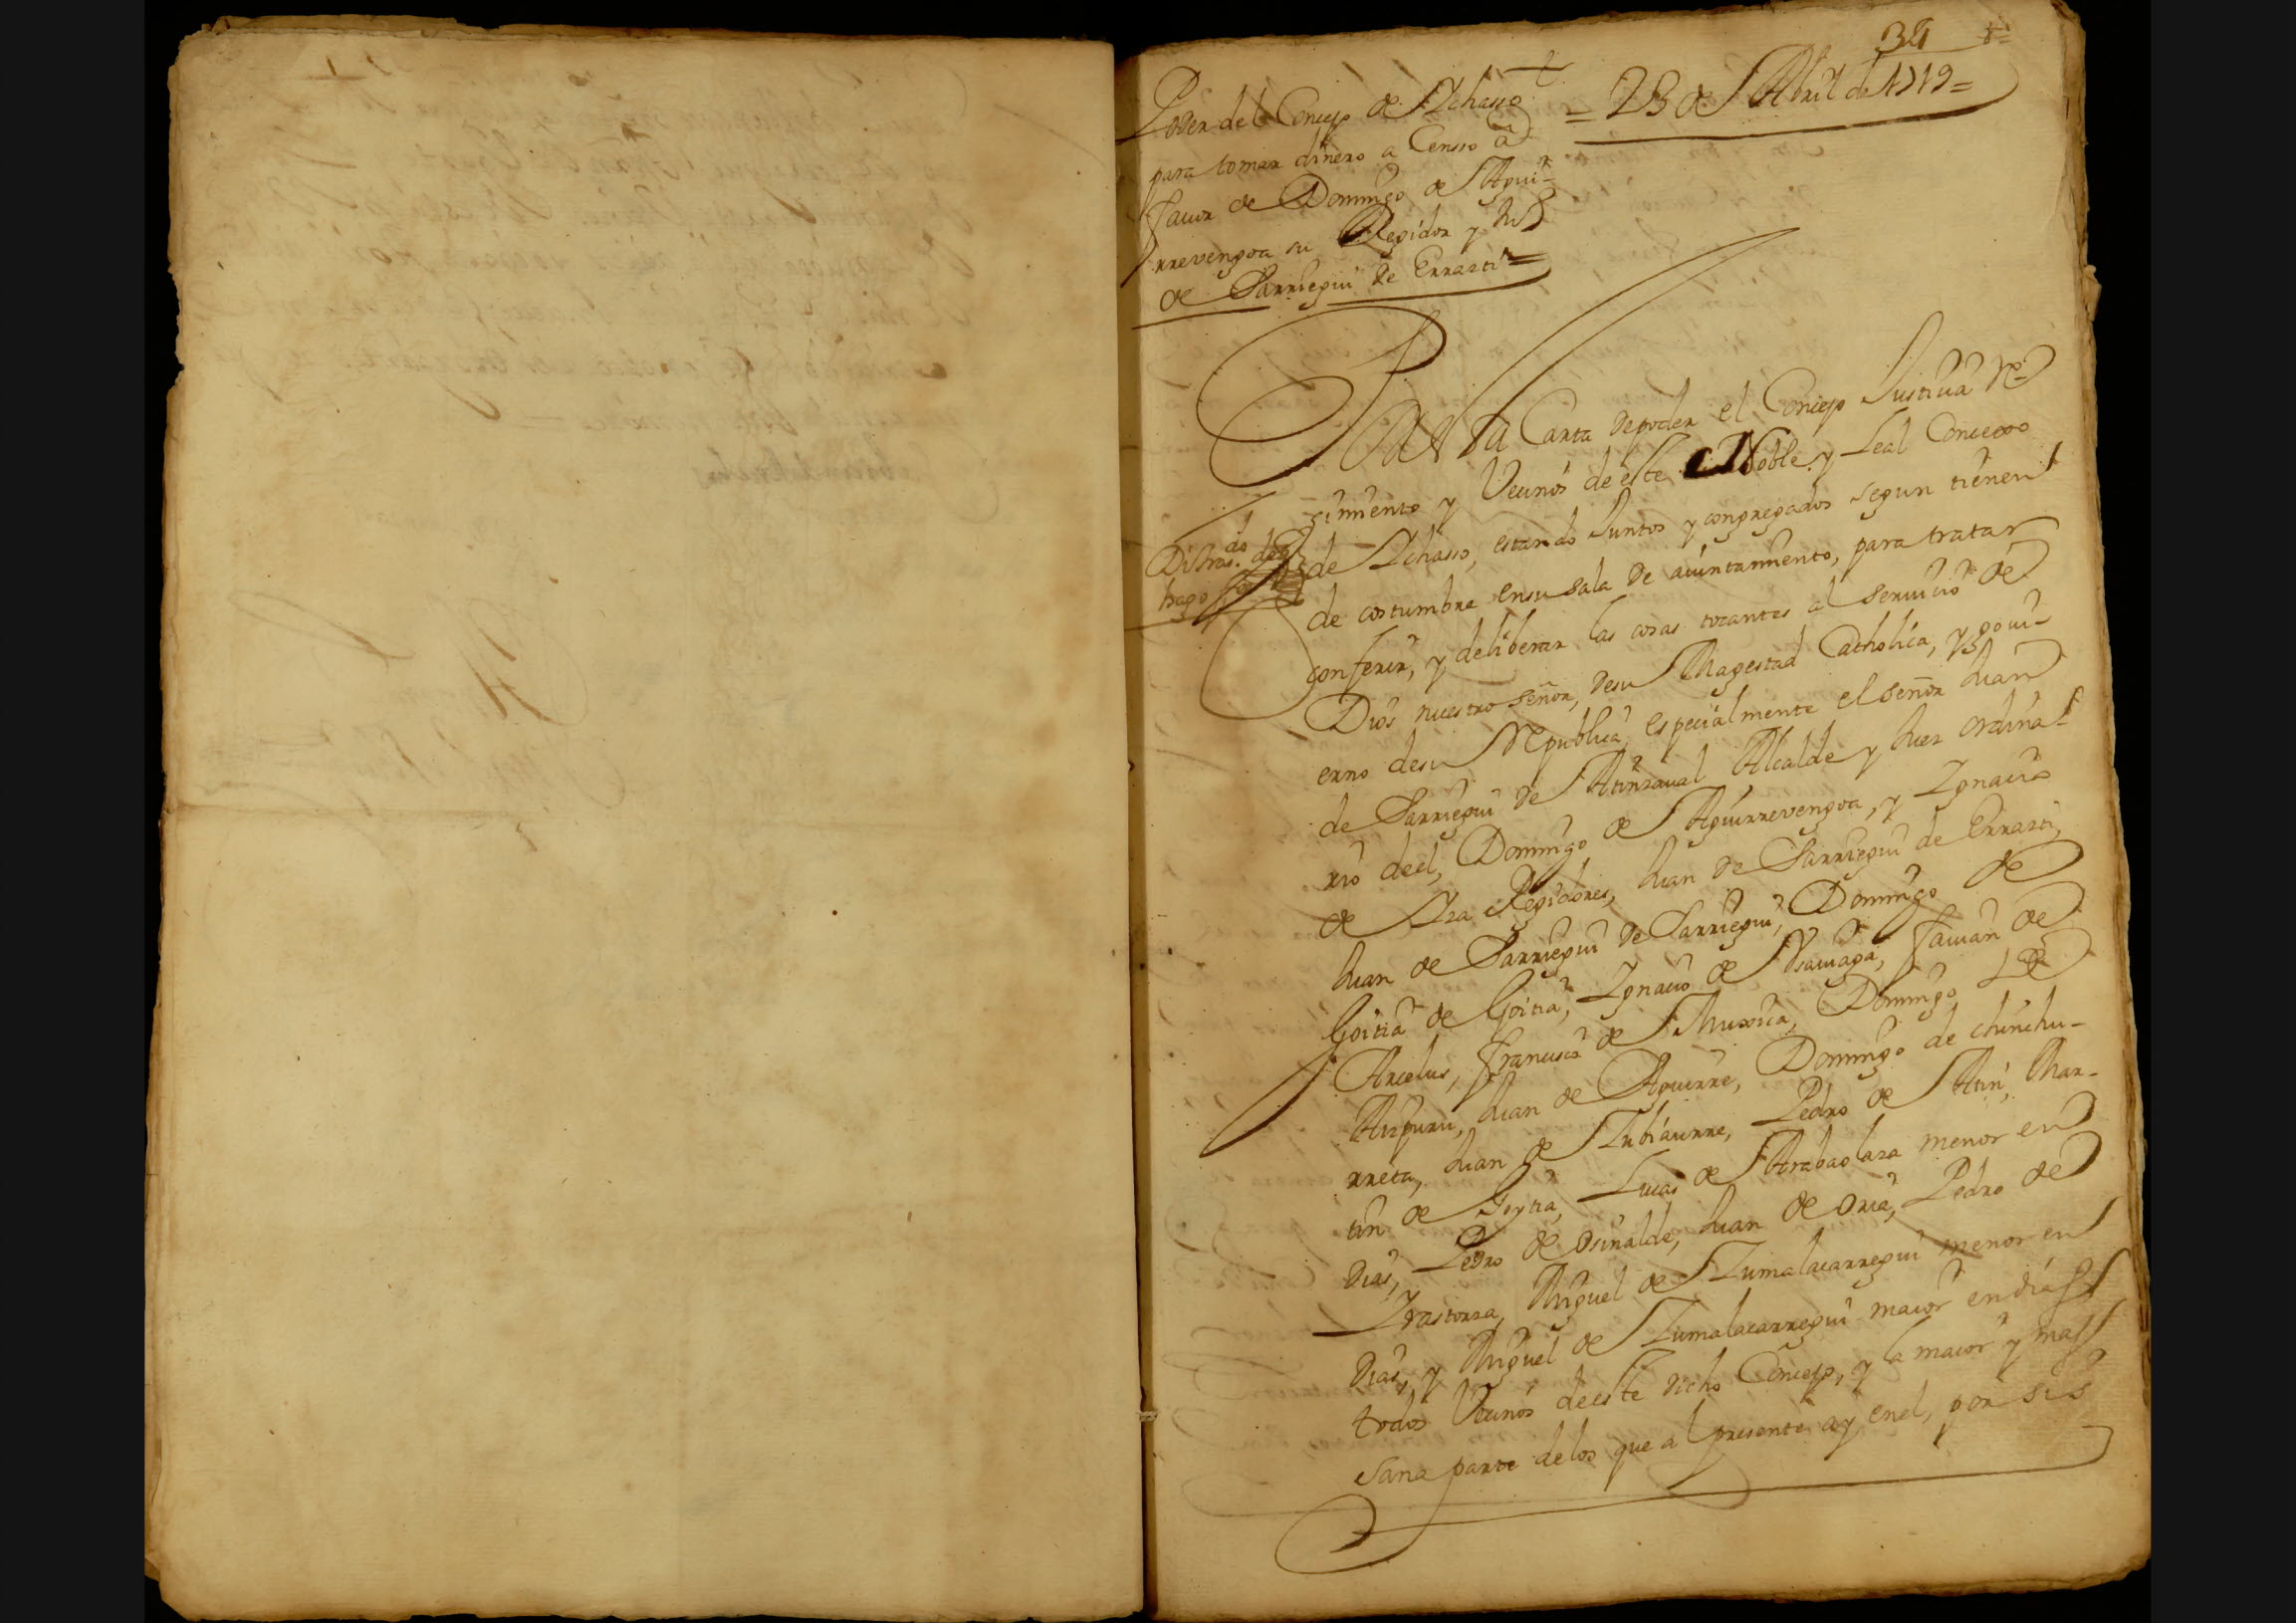 34
Poder del Concejo de Ichasso
para tomar dinero a Censso â
favor de Domingo de Aguir-
rrevengoa su Regidor y Juº
de Sarriegui de Errazti =
= 23 de Abril de 1719 =
Por esta Carta de poder el Concejo Justicia Re-
gimiento y Vecinos de este Noble y Leal Concexo
de Ichasso, estando Juntos y congregados segun tienen
de costumbre en su sala de aiuntamiento, para tratar
conferir, y deliberar las cosas tocantes al servicio de
Dios nuestro señor, de su Magestad Catholica, y govi-
erno de su Republica especialmente el señor Juan
de Sarriegui de Atinzaval Alcalde y Juez ordina-
rio de el, Domingo de Aguirrevengoa, y Ignacio
de Aza Regidores, Juan de Sarriegui de Errazti,
Juan de Sarriegui de Sarriegui, Domingo de
Goitia de Goitia, Ignacio de Favian de
Arcelus, Francisco de Muxica, Domingo de
Aizpuru, Juan de Aguirre, Domingo de chinchu-
rreta, Juan de Zubiaurre, Pedro de Atin, Mar-
tin de Goytia, Lucas de Arabaolaza menor en
dias, Pedro de Osinalde, Juan de Oria, Pedro de
Irastorza, Miguel de Zumalacarregui menor en
dias, y Miguel de Zumalacarregui maior en dias
todos Vecinos de este dicho Concejo, y la maior y mas
sana parte de los que al presente ay en el, por si